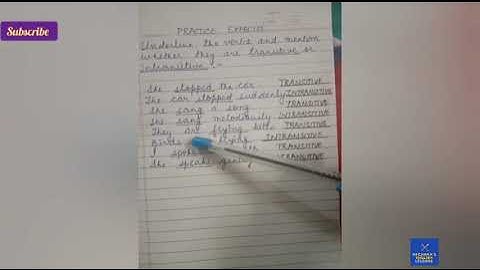 Subscribe
PRACTICE EXERCISE
Underline the verbs and mention
whether they are transitive or
Intransitive :-
She stopped the car TRANSITIVE
The car stopped suddenly INTRANSITIVE
She sang a song TRANSITIVE
She sang melodiously INTRANSITIVE
They are flying kite TRANSITIVE
Birds flying INTRANSITIVE
I spoke TRANSITIVE
She speaks TRANSITIVE